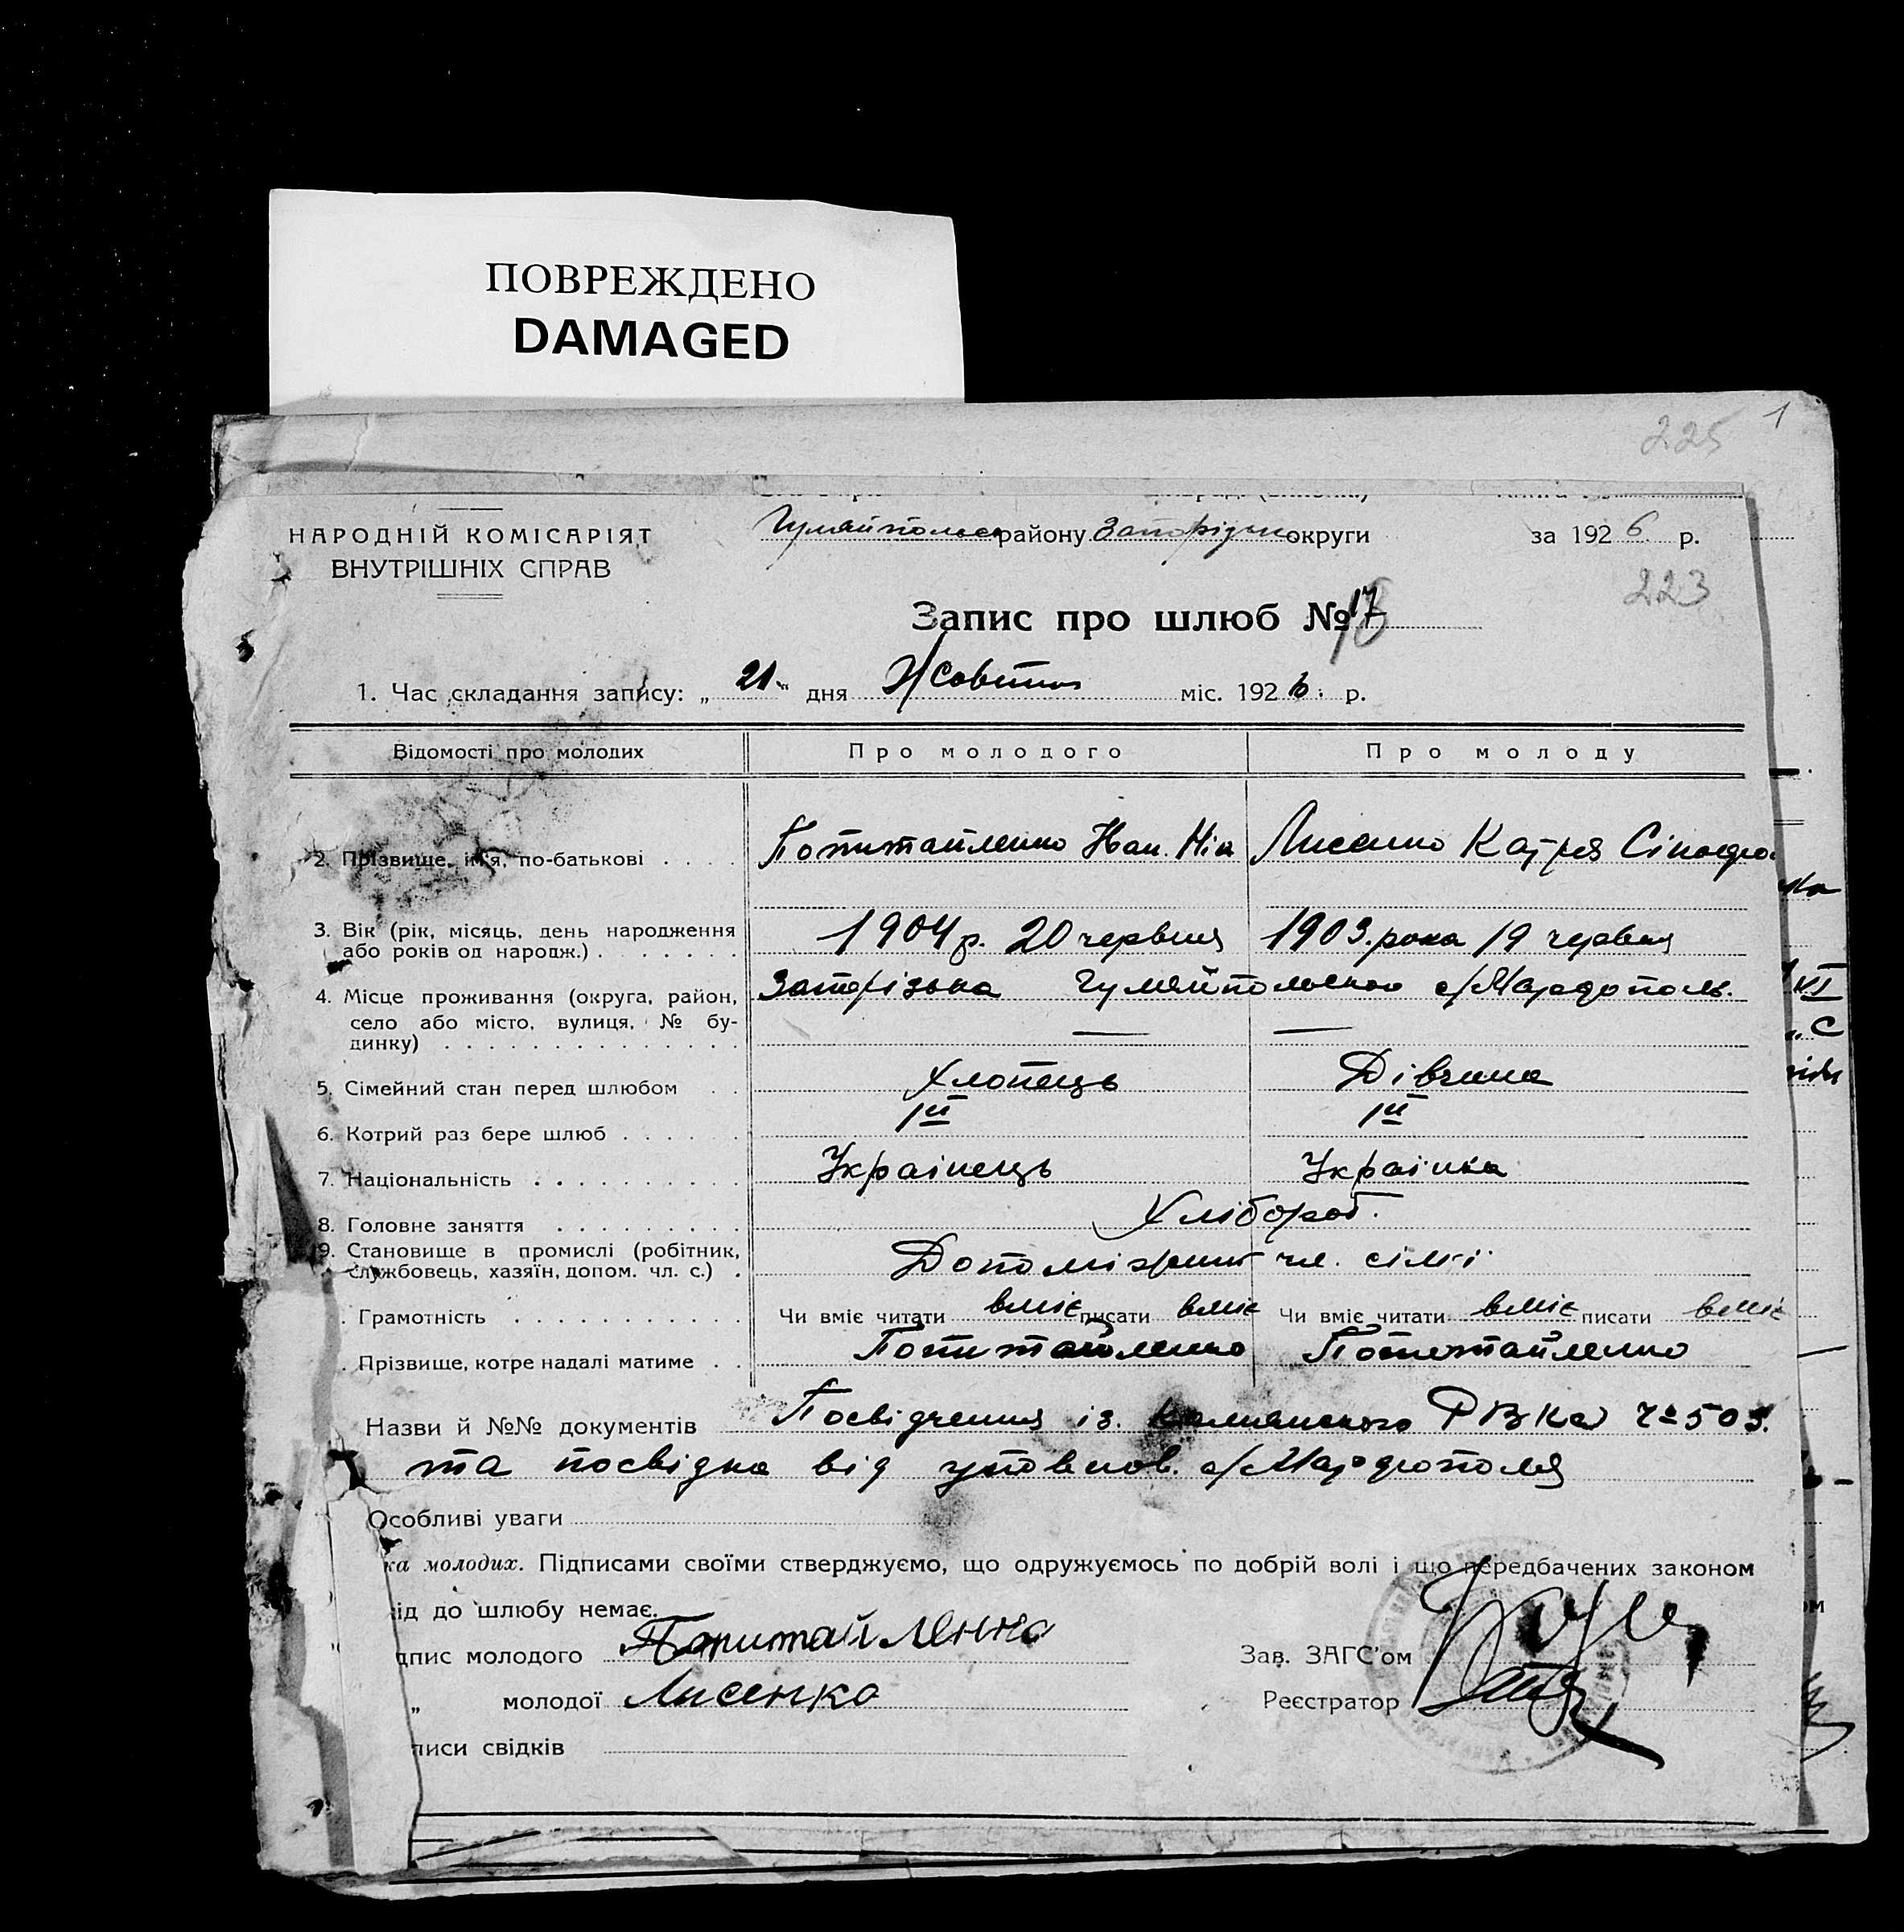 ПОВРЕЖДЕНО
DAMAGED
225 1
НАРОДНІЙ КОМІСАРІЯТ
ВНУТРІШНІХ СПРАВ
Гуляйпольськ району Запорізьк округи за 1926 р.
223
Запис про шлюб № 17
1. Час складання запису: „21" дня Жовтня міс. 1926. р.
Відомості про молодих Про молодого Про молоду
2. Прізвище, ім'я, по-батькові . . . . Попитайленко Іван. Лисенко Катря
3. Вік (рік, місяць, день народження 1904 р. 20 червня 1903. рока 19 червня
або років од народж.) . . . . . . .
4. Місце проживання (округа, район, Запорізька Гуляйпольского
село або місто, вулиця, № бу-
динку) . . . . . . . . . . . . . . — —
5. Сімейний стан перед шлюбом . . Хлопець Дівчина
6. Котрий раз бере шлюб . . . . . . Iй Iй
7. Національність . . . . . . . . . . Українець Українка
8. Головне заняття . . . . . . . . . Хлібороб.
9. Становище в промислі (робітник, Допоміжний чл. сімї
службовець, хазяїн, допом. чл. с.) .
. Грамотність . . . . . . . . . . . Чи вміє читати вміє писати вміє Чи вміє читати вміє писати вміє
. Прізвище, котре надалі матиме . . Попитайленко Попитайленко
Назви й №№ документів Посвідчення із. РВКа
та посвідка від уповнов.
Особливі уваги
ка молодих. Підписами своїми стверджуємо, що одружуємось по добрій волі і що передбачених законом
ід до шлюбу немає.
дпис молодого Попитайленко Зав. ЗАГС'ом
„ молодої Лисенко Реєстратор
писи свідків